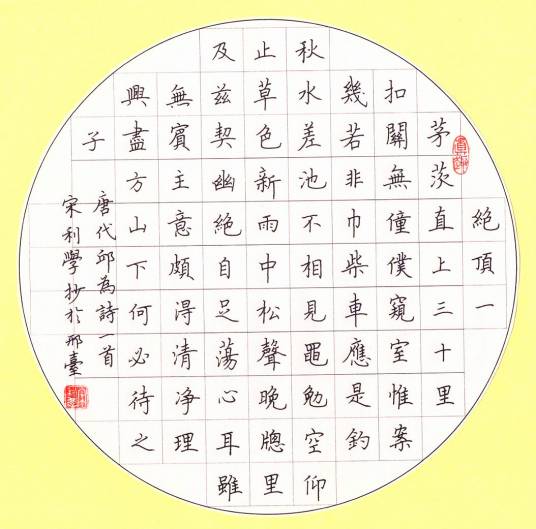 絶頂一
茅茨直上三十里
扣關無僮僕窺室惟案
幾若非巾柴車應是釣
秋水差池不相見黽勉空仰
止草色新雨中松聲晚牕里
及兹契幽絶自足蕩心耳雖
無賓主意頗得清净理
興盡方山下何必待之
子
唐代邱為詩一首
宋利學抄於邢臺